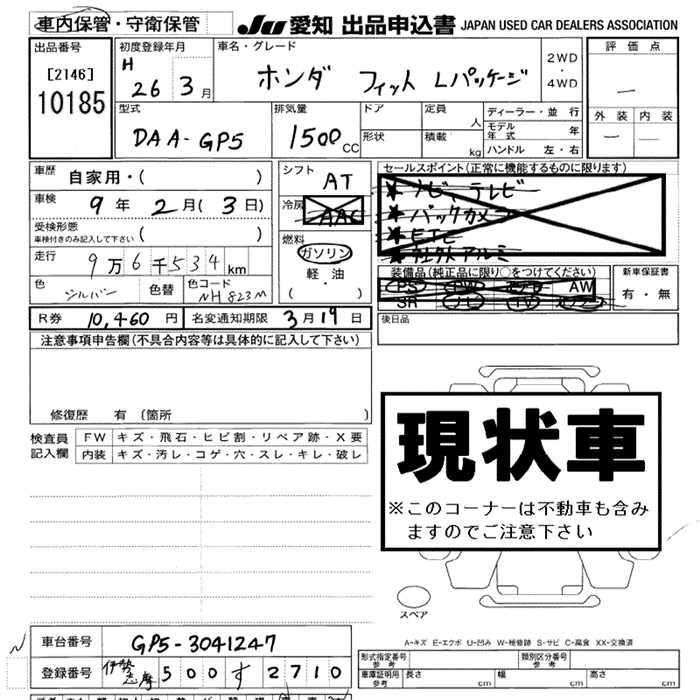 車内保管・守衛保管
JU 愛知 出品申込書 JAPAN USED CAR DEALERS ASSOCIATION
出品番号
[2146]
10185
初度登録年月
H
26 3月
車名・グレード
ホンダ フィット Lパッケージ
2WD
・
4WD
評価点
ー
外装 内装
ー
型式
DAA-GP5
排気量
1500cc
ドア
形状
定員
人
積載
kg
ディーラー・並行
モデル
年式 年
ハンドル 左・右
車歴
自家用・( )
車検
9年 2月(3日)
受検形態
車検付きのみ記入して下さい ( )
走行
9万6千534km
色
シルバー
色替
色コード
NH823M
シフト
AT
冷房
AAC
燃料
ガソリン
軽・油
( ・ )
セールスポイント(正常に機能するものに限ります)
★ナビ、テレビ
★バックカメ
★ETC
★社外アルミ
装備品(純正品に限り○をつけてください)
PS PW AW
SR ナビ TV
新車保証書
有・無
R券 10,460円
名変通知期限 3月19日
後日品
注意事項申告欄(不具合内容等は具体的に記入して下さい)
修復歴 有(箇所 )
検査員
記入欄
FW キズ・飛石・ヒビ割・リペア跡・X要
内装 キズ・汚レ・コゲ・穴・スレ・キレ・破レ
現状車
※このコーナーは不動車も含み
ますのでご注意下さい
スペア
A-キズ E-エクボ U-凹み W-補修跡 S-サビ C-腐食 XX-交換済
車台番号 GP5-3041247
登録番号 伊勢志摩 500 す 2710
形式指定番号
参考
類別区分番号
参考
車庫証明用
参考
長さ cm
幅 cm
高さ cm